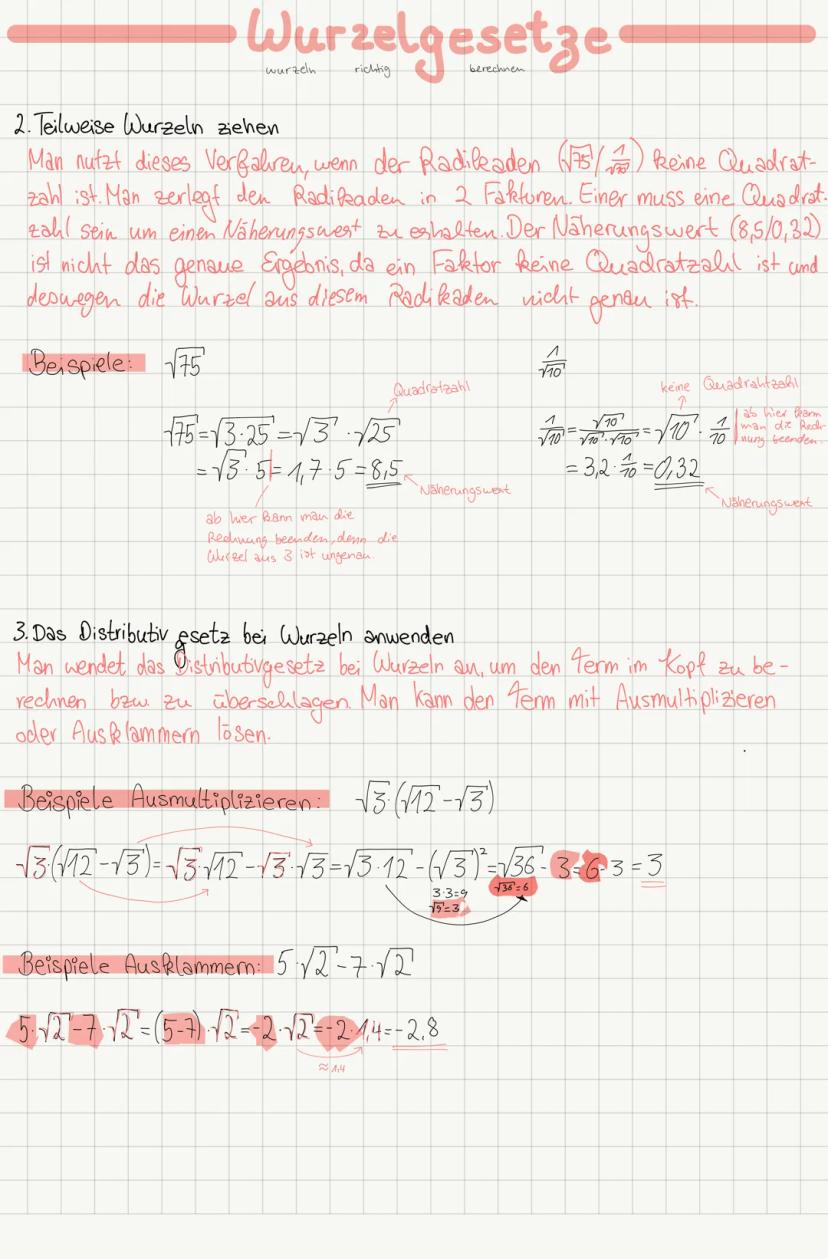 Wurzelgesetze
wurzeln richtig berechnen
2. Teilweise Wurzeln ziehen
Man nutzt dieses Verfahren, wenn der Radikaden (√75/ 1/√10) keine Quadrat-
zahl ist. Man zerlegt den Radikaden in 2 Fakturen. Einer muss eine Quadrat-
zahl sein um einen Näherungswert zu erhalten. Der Näherungswert (8,5/0,32)
ist nicht das genaue Ergebnis, da ein Faktor keine Quadratzahl ist und
deswegen die Wurzel aus diesem Radikaden nicht genau ist.
Beispiele: √75
Quadratzahl
√75 = √3·25 = √3 · √25
= √3 · 5 = 1,7 · 5 = 8,5
Näherungswert
ab hier kann man die
Rechnung beenden, denn die
Wurzel aus 3 ist ungenau.
1/√10
keine Quadrahtzahl
1/√10 = √10/√10·√10 = √10 · 1/10
ab hier kann
man die Rech-
nung beenden.
= 3,2 · 1/10 = 0,32
Näherungswert
3. Das Distributivgesetz bei Wurzeln anwenden
Man wendet das Distributivgesetz bei Wurzeln an, um den Term im Kopf zu be-
rechnen bzw. zu überschlagen. Man kann den Term mit Ausmultiplizieren
oder Ausklammern lösen.
Beispiele Ausmultiplizieren: √3·(√12-√3)
√3·(√12-√3) = √3·√12-√3·√3 = √3·12-(√3)² = √36-3=6-3=3
3·3=9
√9=3
√36=6
Beispiele Ausklammern: 5·√2-7·√2
5·√2-7·√2=(5-7)·√2=-2·√2=-2·1,4=-2,8
≈1,4